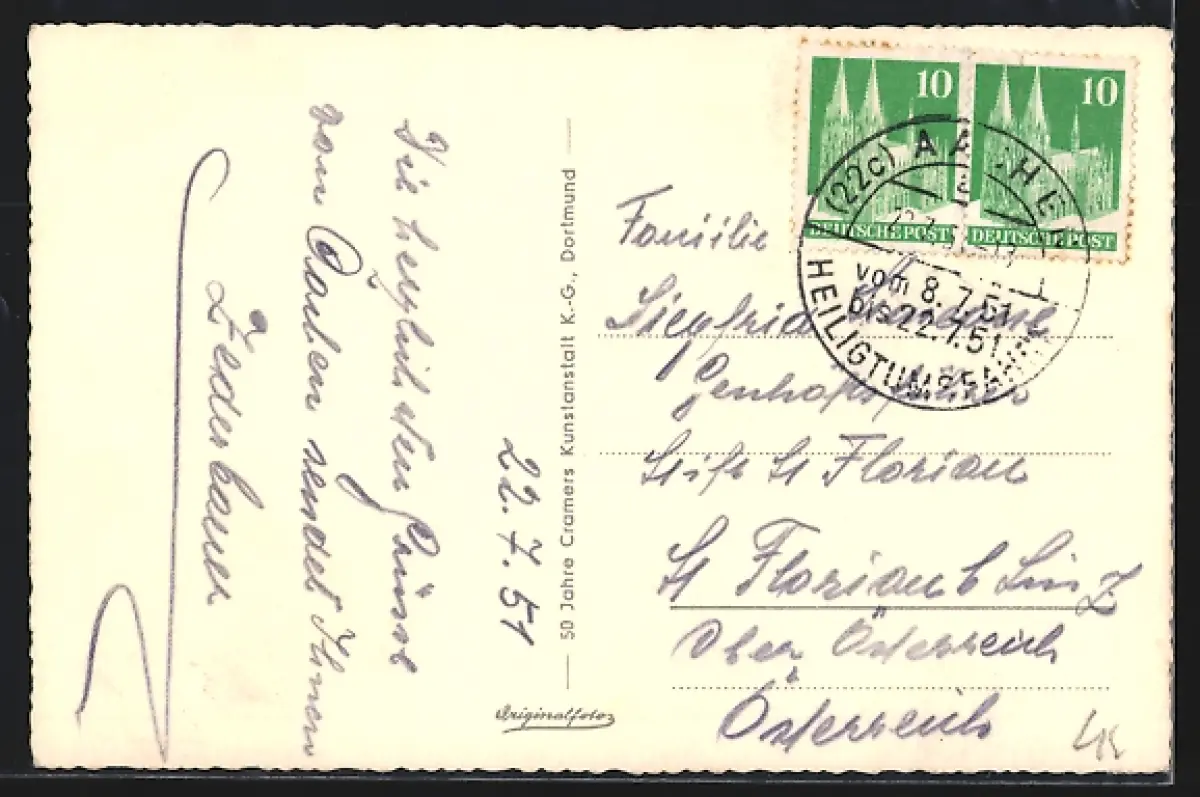 22.7.51
Die herzlichsten Grüsse
vom Aachen sendet Ihnen
Zederbauer
50 Jahre Cramers Kunstanstalt K.-G., Dortmund
Originalfoto
10
DEUTSCHE POST
10
DEUTSCHE POST
(22c) AACHEN
vom 8.7.51
bis 22.7.51
HEILIGTUMSFAHRT
Familie
Siegfried
Stift St Florian
St Florian b Linz
Ober Österreich
Österreich